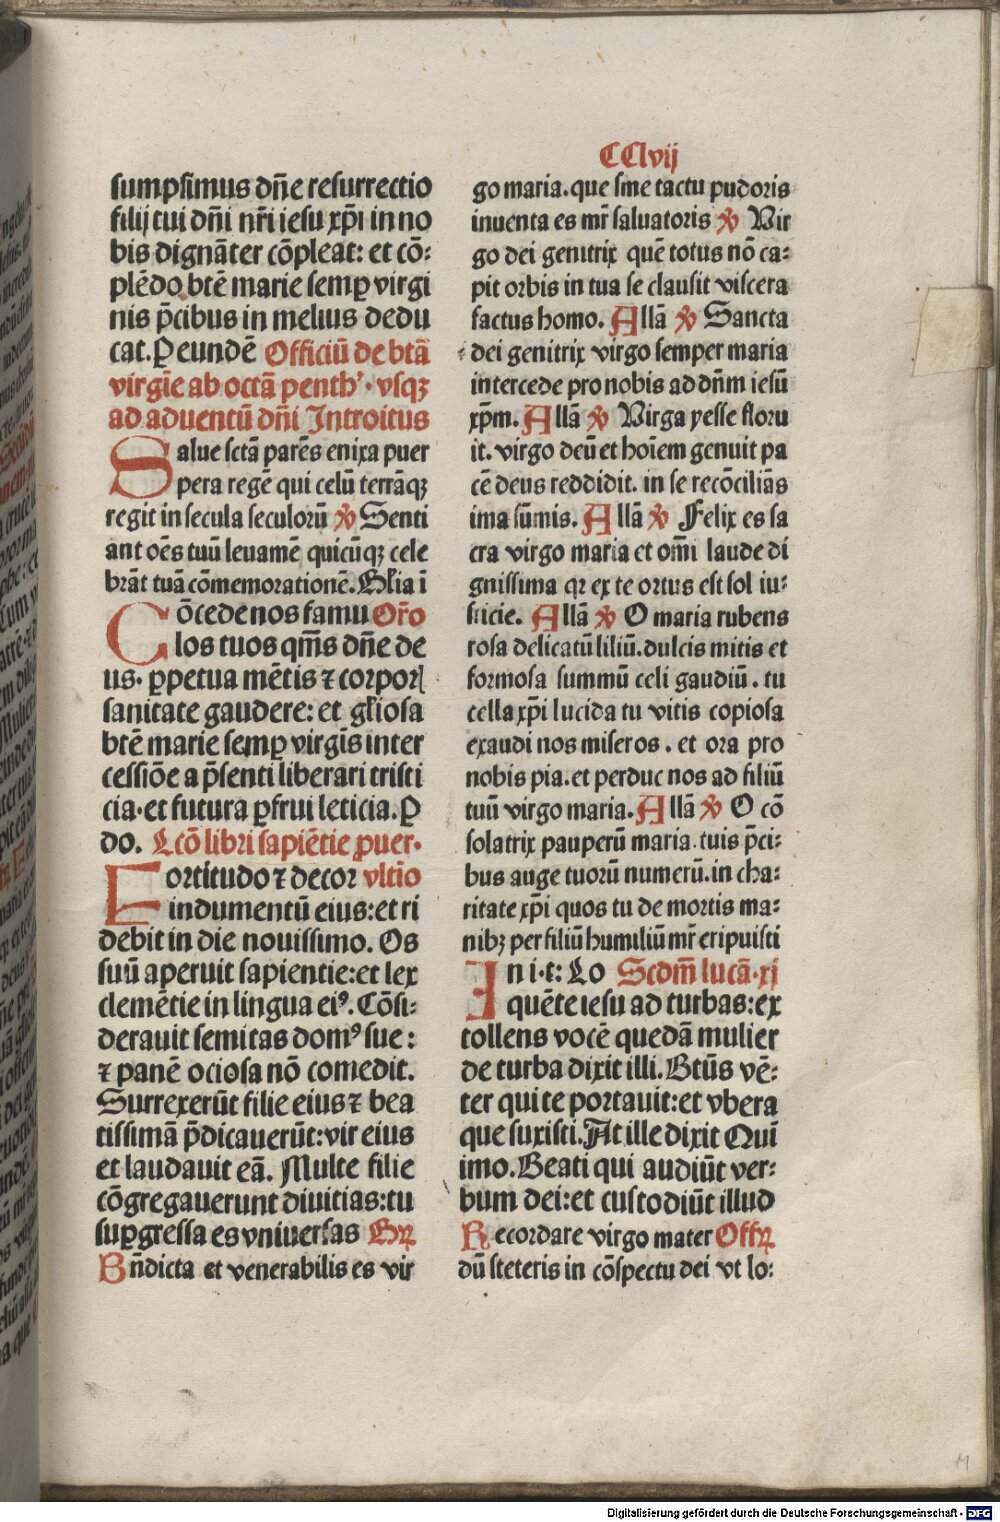 CClvij
sumpsimus dn̄e resurrectio
filij tui dn̄i nr̄i iesu xp̄i in no
bis dignāter cōpleat: et cō:
plēdo btē marie semꝑ virgi
nis p̄cibus in melius dedu
cat. Per eundē Officiū de btā
virgīe ab octā penthꝰ. vsqꝫ
ad aduentū dn̄i Introitus
Salue sctā parēs enixa puer
pera regē qui celū terrāqꝫ
regit in secula seculorū ℣ Senti
ant oēs tuū leuamē quicūqꝫ cele
brāt tuā cōmemorationē. Glīa ī
Cōcede nos famu Orō
los tuos qm̄s dn̄e de
us. ꝑpetua mētis ⁊ corporꝭ
sanitate gaudere: et gl̄iosa
btē marie semꝑ virgīs inter
cessiōe a p̄senti liberari tristi
cia. et futura ꝑfrui leticia. Ꝑ
do. Lcō libri sapiētie ꝓuer.
Fortitudo ⁊ decor vltīo
indumentū eius: et ri
debit in die nouissimo. Os
suū aperuit sapientie: et lex
clemētie in lingua eiꝰ. Cōsi:
derauit semitas domꝰ sue:
⁊ panē ociosa nō comedit.
Surrexerūt filie eius ⁊ bea
tissimā p̄dicauerūt: vir eius
et laudauit eā. Multe filie
cōgregauerunt diuitias: tu
suꝑgressa es vniuersas Grꝝ
Bn̄dicta et venerabilis es vir
go maria. que sine tactu pudoris
inuenta es mr̄ saluatoris ℣ Vir
go dei genitrix quē totus nō ca:
pit orbis in tua se clausit viscera
factus homo. Allā ℣ Sancta
dei genitrix virgo semper maria
intercede pro nobis ad dn̄m iesū
xp̄m. Allā ℣ Virga yesse floru
it. virgo deū et hoīem genuit pa
cē deus reddidit. in se recōciliās
ima sūmis. Allā ℣ Felix es sa
cra virgo maria et om̄i laude di
gnissima qꝛ ex te ortus est sol iu:
sticie. Allā ℣ O maria rubens
rosa delicatū liliū. dulcis mitis et
formosa summū celi gaudiū. tu
cella xp̄i lucida tu vitis copiosa
exaudi nos miseros. et ora pro
nobis pia. et perduc nos ad filiū
tuū virgo maria. Allā ℣ O cō
solatrix pauperū maria. tuis p̄ci:
bus auge tuorū numerū. in cha:
ritate xp̄i quos tu de mortis ma:
nibꝫ per filiū humiliū mr̄ eripuisti
In i. t: Lo Scdm̄ lucā. xi
quēte iesu ad turbas: ex
tollens vocē quedā mulier
de turba dixit illi. Btūs vē:
ter qui te portauit: et vbera
que suxisti. At ille dixit Quī
imo. Beati qui audiūt ver:
bum dei: et custodiūt illud
Recordare virgo mater Offꝝ
dū steteris in cōspectu dei vt lo:
M
Digitalisierung gefördert durch die Deutsche Forschungsgemeinschaft - DFG